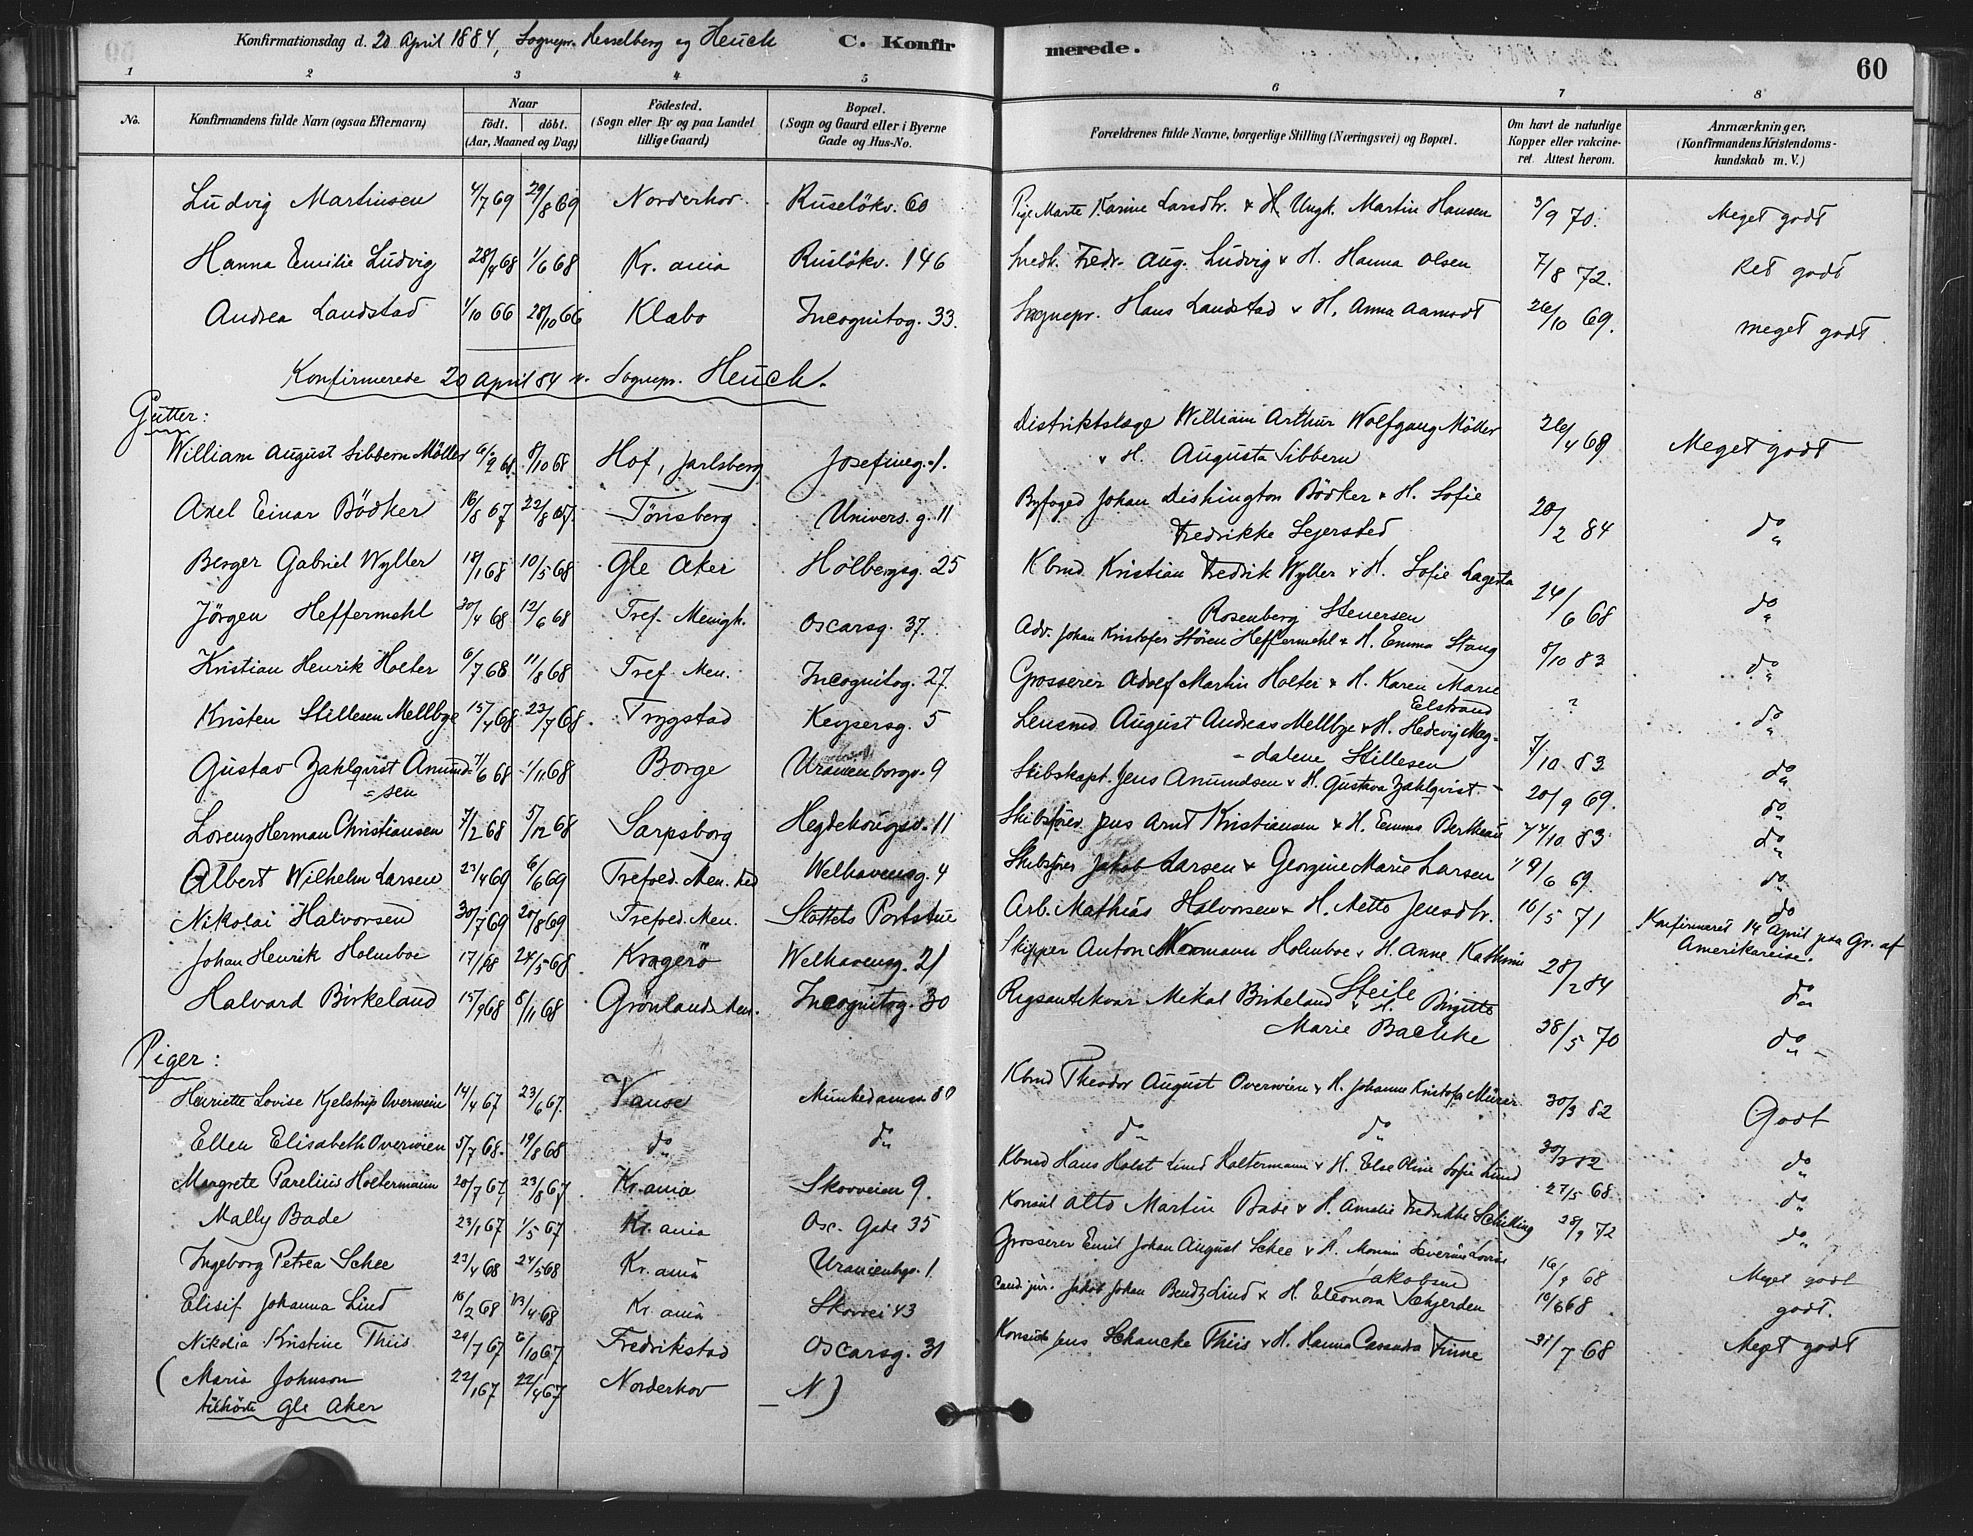 Konfirmationsdag d. 20 April 1884, Sognepr. Hesselberg og Heuch C. Konfirmerede. 60
1 2 3 4 5 6 7 8
No. Konfirmandens fulde Navn (ogsaa Efternavn) Naar födt. döbt. (Aar, Maaned og Dag) Födested. (Sogn eller By og paa Landet tillige Gaard) Bopæl. (Sogn og Gaard eller i Byerne Gade og Hus-No. Forældrenes fulde Navne, borgerlige Stilling (Næringsvei) og Bopæl. Om havt de naturlige Kopper eller vaccineret Attest herom. Anmærkninger. (Konfirmandens Kristendomskundskab m. V.)
Ludvig Martinsen 4/7 69 29/8 69 Norderhov. Ruselökv. 60 Pige Marte Karine Larsdtr. & Ungk. Martin Hansen 3/9 70. Meget godt
Hanna Emilie Ludvig 28/4 68 1/6 68 Kr.ania Ruslökv. 146 Fredr. Aug. Ludvig & H. Hanna Olsen 7/8 72. Ret godt
Andrea Landstad 1/10 66 28/10 66 Klæbo Incognitog. 33. Sognepr. Hans Landstad & H. Anna Aamodt 26/10 69. meget godt
Konfirmerede 20 April 84 v. Sognepr. Heuch.
Gutter:
William August Sibbern Möller 6/9 68 8/10 68 Hof, Jarlsberg Josefineg. 1. Distriktslæge William Arthur Wolfgang Möller & H. Augusta Sibbern 26/4 69 Meget godt
Axel Einar Bödker 16/8 67 22/8 67. Tönsberg Univers. g. 11 Byfoged Johan Dishington Bödker & H. Sofie Fredrikke Sejersted 20/2 84 do
Berger Gabriel Wyller 18/1 68 10/5 68 Gle Aker Holbergsg. 25 Kbmd Kristian Fredrik Wyller & H. Sofie Lagerta Rosenberg Stenersen 24/6 68 do
Jörgen Heffermehl 30/4 68 12/6 68 Tref. Menigh. Oscarsg. 37. Adv. Johan Kristofer Stören Heffermehl & H. Emma Stang 8/10 83 do
Kristian Henrik Holter 6/7 68 11/8 68 Tref. Men. Incognitog. 27. Grosserer Adolf Martin Holter & H. Karen Marie Elstrand ? do
Kristen Stillesen Mellbye 15/4 68 23/7 68. Trygstad Keysersg. 5 Lensmd August Andreas Mellbye & H. Hedevig Magdalene Stillesen 7/10 83 do
Gustav Zahlqvist Amundsen 7/6 68 1/11 68 Borge Uranienborgv. 9 Skibskapt. Jens Amundsen & H. Gustava Zahlqvist 20/9 69. do
Lorenz Herman Christiansen 7/2 68 5/12 68 Sarpsborg Hegdehougsv. 11 Skibsförer Jens Arnt Kristiansen & H. Emma Bertheau 4/10 83 do
Albert Wilhelm Larsen 23/4 69 6/6 69 Trefold. Men. Welhavensg. 4 Skibsförer Jakob Larsen & Georgine Marie Larsen 19/6 69 do
Nikolai Halvorsen 30/7 69 20/8 69 Trefold. Men. Slottets Portstue Arb. Mathias Halvorsen & H. Mette Jensdtr. 16/5 71 do Konfirmeret 14 April paa Gr. af Amerikareise.
Johan Henrik Holmboe 17/1 68 24/5 68 Kragerö Welhavensg. 21 Skipper Anton Normann Holmboe & H. Anne Kathrine Steile 28/2 84 do
Halvard Birkeland 15/9 68 8/11 68 Grönlands Men. Incognitog. 30 Rigsantikvar Mikal Birkeland & H. Birgitte Marie Bachke 28/5 70 do
Piger:
Henriette Lovise Kjelstrup Overwein 14/4 67 23/6 67. Vanse Munkedamsv 80 Kbmd Theodor August Overwien & H. Johanne Kristofa Mürer 30/3 82 Godt
Ellen Elisabeth Overwien 5/7 68. 19/8 68 do do do do 30/3 82 do
Margrete Parelius Holtermann 20/7 67 23/8 67 Kr.ania Skovveien 9. Kbmd Hans Holst Lund Holtermann & H. Else Oline Sofie Lund 27/5 68 do
Mally Bade 23/1 67 1/5 67 Kr.ania Osc. Gade 35 Konsul Otto Martin Bade & H. Amalie Fredrikke Schilling 28/9 72 do
Ingeborg Petrea Schee 23/4 68 24/5 68 Kr.ania Uranienbgv. 1 Grosserer Emil Johan August Schee & H. Severine Lovise Jakobsen 16/9 68 Meget godt
Elisif Johanna Lind 16/2 68 13/4 68 Kr.ania Skovvei 43 Cand. jur. Jakob Johan Bendz Lind & H. Eleonora 10/6 68 godt.
Nikolia Kristine Thiis 29/7 67 6/10 67 Fredrikstad Oscarsg. 31 Konsul Jens Schancke Thiis & H. Hanna Casandra Finne 31/7 68 Meget godt
(Maria Johnson 22/1 67 22/4 67 Norderhov — N)
tilhörte Gle Aker